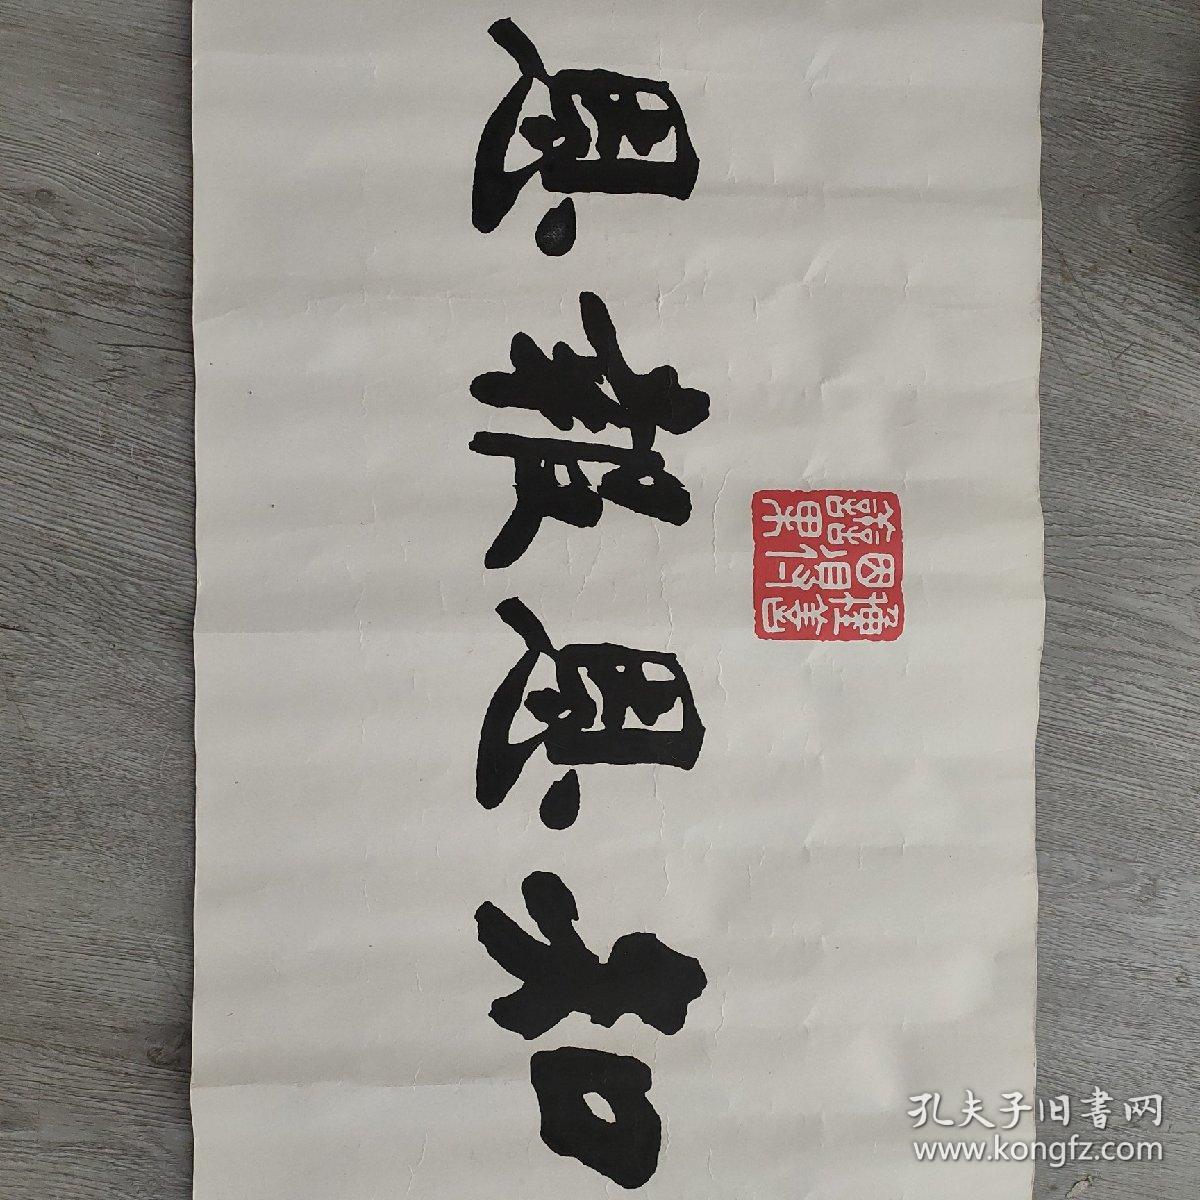 知恩報恩
孔夫子旧書网
www.kongfz.com